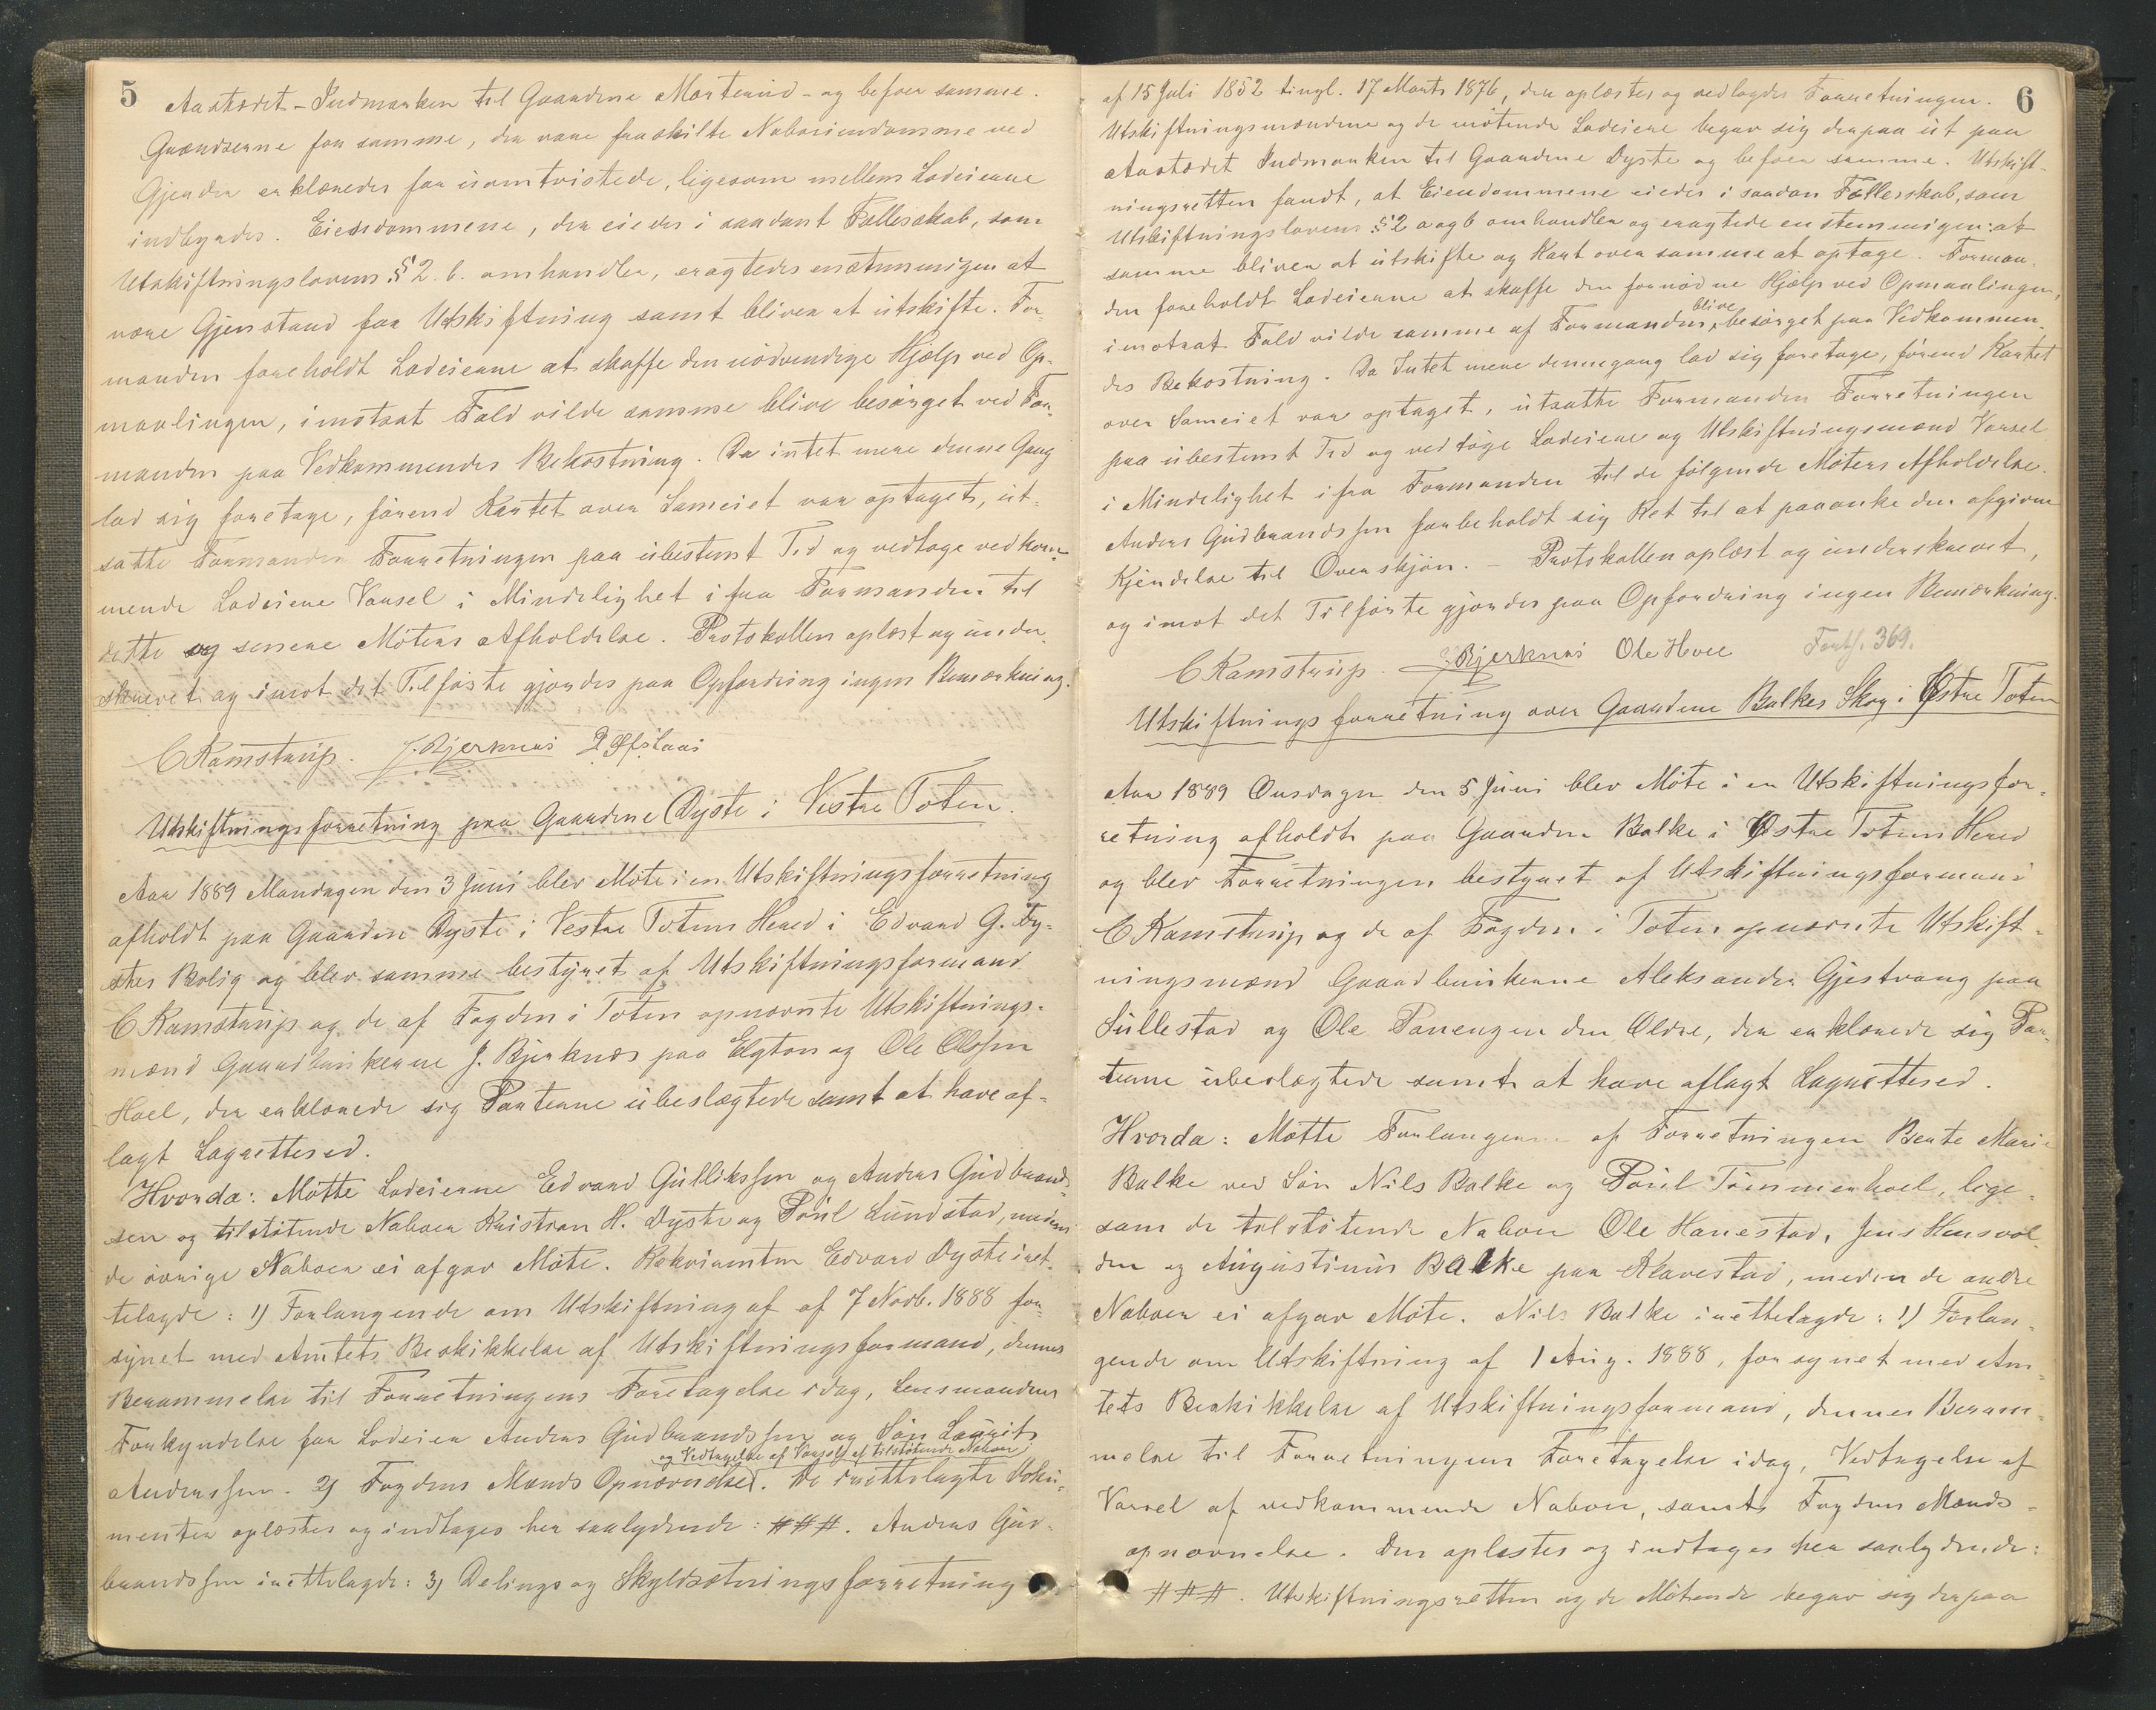 5
Aastædet - Indmarken til Gaardene Morterud - og befoer samme.
Grændserne for samme, der vare fraskilte Naboeiendomme ved
Gjerder erklæredes for uomtvistede, ligesom mellem Lodeierne
indbyrdes. Eiendommene, der eiedes i saadant Fællesskab, som
Utskiftningslovens § 2. b. omhandler, eragtedes enstemmigen at
være Gjenstand for Utskiftning samt bliver at utskifte. For-
manden foreholdt Lodeierne at skaffe den nödvendige Hjælp ved Op-
maalingen, imotsat Fald vilde samme blive besörget ved For-
manden paa Vedkommendes Bekostning. Da intet mere denne Gang
lod sig foretage, förend Kartet over Sameiet var optaget, ut-
satte Formanden Forretningen paa ubestemt Tid og vedtoge vedkom-
mende Lodeiere Varsel i Mindelighet i fra Formanden til
dette og senere Möters Afholdelse. Protokollen oplæst og under-
skrevet og imot det Tilförte gjordes paa Opfordring ingen Bemærkning.
C Ramstrup. J. Bjerknes P. Ofstaas
Utskiftningsforretning paa Gaardene Dyste i Vestre Toten.
Aar 1889 Mandagen den 3 Juni blev Möte i en Utskiftningsforretning
afholdt paa Gaarden Dyste i Vestre Totens Hered i Edvard G. Dy-
stes Bolig og blev samme bestyret af Utskiftningsformand
C Ramstrup og de af Fogden i Toten opnævnte Utskiftnings-
mænd Gaardbrukerne J. Bjerknes paa Elgton og Ole Olssen
Hoel, der erklærede sig Parterne ubeslægtede samt at have af-
lagt Lagrettesed.
Hvorda: Mötte Lodeierne Edvard Gulliksſen og Anders Gudbrand-
sen og tilstötende Naboer Kristian H. Dyste og Poul Lundstad, medens
de övrige Naboer ei afgav Möte. Rekvirenten Edvard Dyste iret-
telagde: 1) Forlangende om Utskiftning af af 7 Novb. 1888 for-
synet med Amtets Beskikkelse af Utskiftningsformand, dennes
Berammelse til Forretningens Foretagelse idag, Lensmandens
Forkyndelse for Lodeier Anders Gudbrandsſen og Sön Laurits
og Vedtagelse af Varsel af tilstötende Naboer
Andersſen. 2) Fogdens Mands Opnævnelse. De irettelagte Doku-
menter oplæstes og indtages her saalydende: ###. Anders Gud-
brandsſen irettelagde: 3) Delings og Skyldsætningsforretning
6
af 15 Juli 1852 tingl. 17 Marts 1876, der oplæstes og vedlagdes Forretningen.
Utskiftningsmændene og de mötende Lodeiere begav sig derpaa ut paa
Aastædet Indmarken til Gaardene Dyste og befoer samme. Utskift-
ningsretten fandt, at Eiendommene eiedes i saadan Fællesskab, som
Utskiftningslovens § 2 a og b omhandler og eragtede enstemmigen: at
samme bliver at utskifte og Kart over samme at optage. Forman-
den foreholdt Lodeierne at skaffe den fornödne Hjælp ved Opmaalingen,
blive
imotsat Fald vilde samme af Formanden besörget paa Vedkommen-
des Bekostning. Da Intet mere dennegang lod sig foretage, förend Kartet
over Sameiet var optaget, utsatte Formanden Forretningen
paa ubestemt Tid og vedtoge Lodeierne og Utskiftningsmænd Varsel
i Mindelighet ifra Formanden til de fölgende Möters Afholdelse.
Anders Gudbrandsſen forbeholdt sig Ret til at paaanke den afgivne
Kjendelse til Overskjön. - Protokollen oplæst og underskrevet,
og imot det Tilförte gjordes paa Opfordring ingen Bemærkning.
C Ramstrup. J. Bjerknes Ole Hoel Forts. 369.
Utskiftningsforretning over Gaardene Balkes Skog i Östre Toten
Aar 1889 Onsdagen den 5 Juni blev Möte i en Utskiftningsfor-
retning afholdt paa Gaarden Balke i Östre Totens Hered
og blev Forretningen bestyret af Utskiftningsformand
C Ramstrup og de af Fogden i Toten opnævnte Utskift-
ningsmænd Gaardbrukerne Aleksander Gjestvang paa
Sullestad og Ole Parengen den Eldre, der erklærede sig Par-
terne ubeslægtede samt at have aflagt Lagrettesed.
Hvorda: Mötte Forlangerne af Forretningen Berte Marie
Balke ved Sön Nils Balke og Poul Tömmerhoel, lige-
som de tilstötende Naboer Ole Hanestad, Jens Hensvol-
den og Augustinus Balke paa Klavestad, medens de andre
Naboer ei afgav Möte. Nils Balke irettelagde: 1) Forlan-
gende om Utskiftning af 1 Aug. 1888, forsynet med Am-
tets Beskikkelse af Utskiftningsformand, dennes Beram-
melse til Forretningens Foretagelse idag, Vedtagelse af
Varsel af vedkommende Naboer, samt Fogdens Mands-
opnævnelse. Der oplæstes og indtages her saalydende:
###. Utskiftningsretten og de Mötende begav sig derpaa